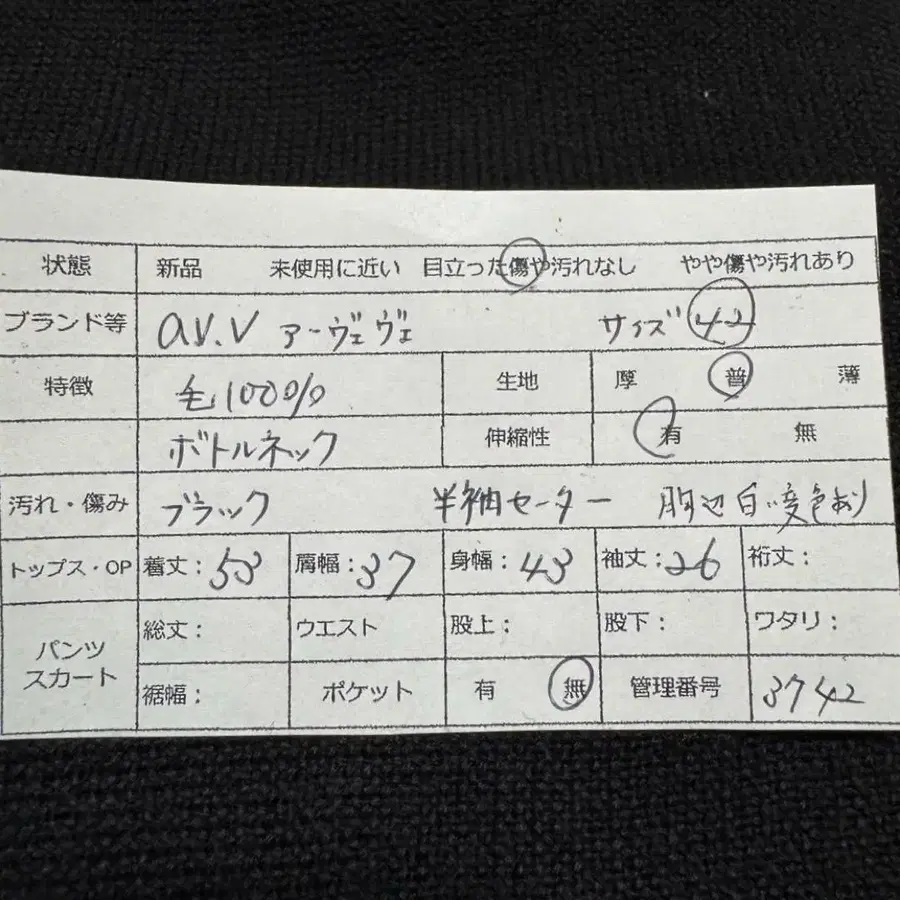 状態 新品 未使用に近い 目立った傷や汚れなし やや傷や汚れあり
ブランド等 a.v.v アーヴェヴェ サイズ 42
特徴 毛100% 生地 厚 普 薄
ボトルネック 伸縮性 有 無
汚れ・傷み ブラック 半袖セーター 胸辺白い変色あり
トップス・OP 着丈：53 肩幅：37 身幅：43 袖丈：26 裄丈：
パンツ スカート 総丈： ウエスト 股上： 股下： ワタリ：
裾幅： ポケット 有 無 管理番号 3742